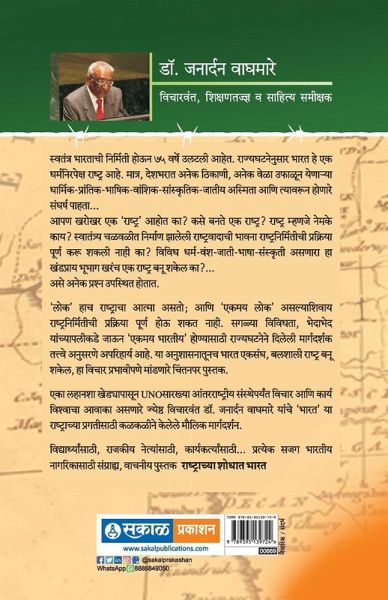 डॉ. जनार्दन वाघमारे
विचारवंत, शिक्षणतज्ज्ञ व साहित्य समीक्षक
स्वतंत्र भारताची निर्मिती होऊन ७५ वर्षे उलटली आहेत. राज्यघटनेनुसार भारत हे एक
धर्मनिरपेक्ष राष्ट्र आहे. मात्र, देशभरात अनेक ठिकाणी, अनेक वेळा उफाळून येणाऱ्या
धार्मिक-प्रांतिक-भाषिक-वांशिक-सांस्कृतिक-जातीय अस्मिता आणि त्यावरून होणारे
संघर्ष पाहता...
आपण खरोखर एक 'राष्ट्र' आहोत का? कसे बनते एक राष्ट्र? राष्ट्र म्हणजे नेमके
काय? स्वातंत्र्य चळवळीत निर्माण झालेली राष्ट्रवादाची भावना राष्ट्रनिर्मितीची प्रक्रिया
पूर्ण करू शकली नाही का? विविध धर्म-वंश-जाती-भाषा-संस्कृती असणारा हा
खंडप्राय भूभाग खरंच एक राष्ट्र बनू शकेल का?...
असे अनेक प्रश्न उपस्थित होतात.
'लोक' हाच राष्ट्राचा आत्मा असतो; आणि 'एकमय लोक' असल्याशिवाय
राष्ट्रनिर्मितीची प्रक्रिया पूर्ण होऊ शकत नाही. सगळ्या विविधता, भेदाभेद
यांच्यापलीकडे जाऊन 'एकमय भारतीय' होण्यासाठी राज्यघटनेने दिलेली मार्गदर्शक
तत्त्वे अनुसरणे अपरिहार्य आहे. या अनुशासनातूनच भारत एकसंध, बलशाली राष्ट्र बनू
शकेल, हा विचार प्रभावीपणे मांडणारे चिंतनपर पुस्तक.
एका लहानशा खेड्यापासून UNOसारख्या आंतरराष्ट्रीय संस्थेपर्यंत विचार आणि कार्य
विश्वाचा आवाका असणारे ज्येष्ठ विचारवंत डॉ. जनार्दन वाघमारे यांचे 'भारत' या
राष्ट्राच्या प्रगतीसाठी कळकळीने केलेले मौलिक मार्गदर्शन.
विद्यार्थ्यांसाठी, राजकीय नेत्यांसाठी, कार्यकर्त्यांसाठी... प्रत्येक सजग भारतीय
नागरिकासाठी संग्राह्य, वाचनीय पुस्तक राष्ट्राच्या शोधात भारत
सकाळ प्रकाशन
www.sakalpublications.com
@sakalprakashan
WhatsApp 8888849050
ISBN 978-93-95139-72-4
9 789395 139724
00669
वैचारिक / संदर्भ